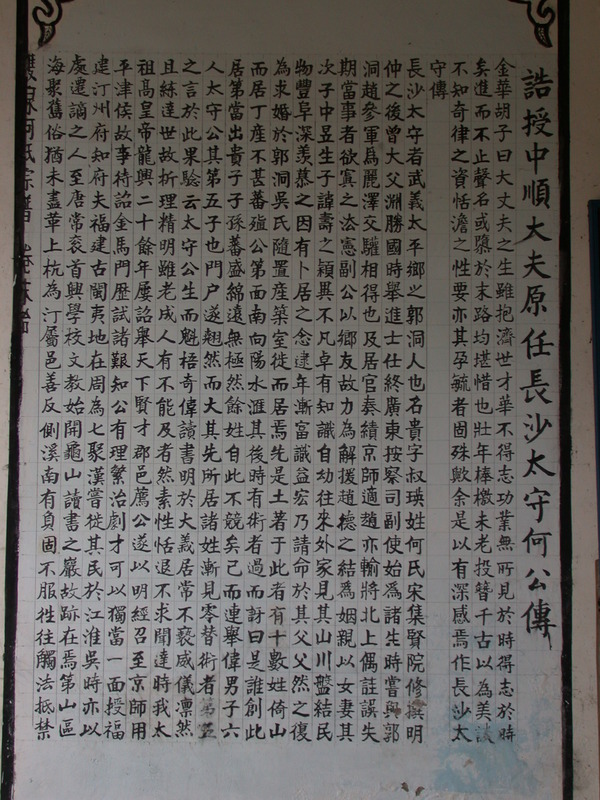 誥授中順大夫原任長沙太守何公傳
金華胡子曰大丈夫之生雖抱濟世才華不得志功業無所見於時得志於時
矣進而不止聲名或隳於末路均堪惜也壯年捧檄未老投簪千古以為美談
不知奇律之資恬澹之性要亦其孕毓者固殊歟余是以有深感焉作長沙太
守傳
長沙太守者武義太平鄉之郭洞人也名貴字叔瑛姓何氏宋集賢院修撰明
仲之後曾大父淵勝國時舉進士仕終廣東按察司副使始為諸生時嘗與郭
洞趙參軍爲麗澤交驩相得也及居官奏績京師適趙亦輸將北上偶詿誤失
期當事者欲寘之法憲副公以鄉友故力為解援趙德之結為姻親以女妻其
次子中昱生子諱壽之穎異不凡卓有知識自幼往來外家見其山川盤結民
物豐阜深羨慕之因有卜居之念逮年漸富識益宏乃請命於其父父然之復
為求婚於郭洞吳氏隨置產築室徙而居焉先是土著于此者有十數姓倚山
而居丁產不甚蕃殖公第面南向陽水滙其後時有術者過而訝曰是誰創此
居第當出貴子子孫蕃盛綿遠無極然餘姓自此不競矣已而連舉偉男子六
人太守公其第五子也門戶遂翹然而大其先所居諸姓漸見零替術者第五
之言於此果驗云太守公生而魁梧奇偉讀書明於大義居常不褻威儀凜然
且練達世故析理精明雖老成人有不能及者然素性恬退不求聞達時我太
祖高皇帝龍興二十餘年屢詔舉天下賢才郡邑薦公遂以明經召至京師用
平津侯故事待詔金馬門歷試諸艱知公有理繁治劇才可以獨當一面授福
建汀州府知府夫福建古閩夷地在周為七聚漢嘗徙其民於江淮吳時亦以
處遷謫之人至唐常袞首興學校文教始開龜山讀書之巖故跡在焉第山區
海聚舊俗猶未盡革上杭為汀屬邑善反側溪南有負固不服往往觸法抵禁